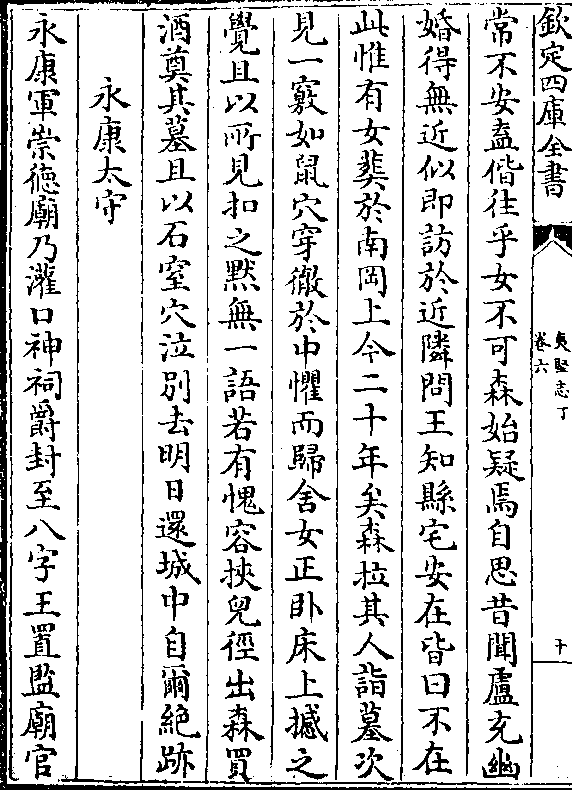 欽定四庫全書
夷堅志丁
卷六
十
常不安盍偕往乎女不可森始疑焉自思昔聞盧充幽
婚得無近似即訪於近隣問王知縣宅安在皆曰不在
此惟有女葬於南岡上今二十年矣森拉其人詣墓次
見一竅如鼠穴穿徹於中懼而歸舍女正卧床上撼之
覺且以所見扣之黙無一語若有愧容挾兒徑出森買
酒奠其墓且以石窒穴泣别去明日還城中自爾絶跡
永康太守
永康軍崇徳廟乃灌口神祠爵封至八字王置監廟官